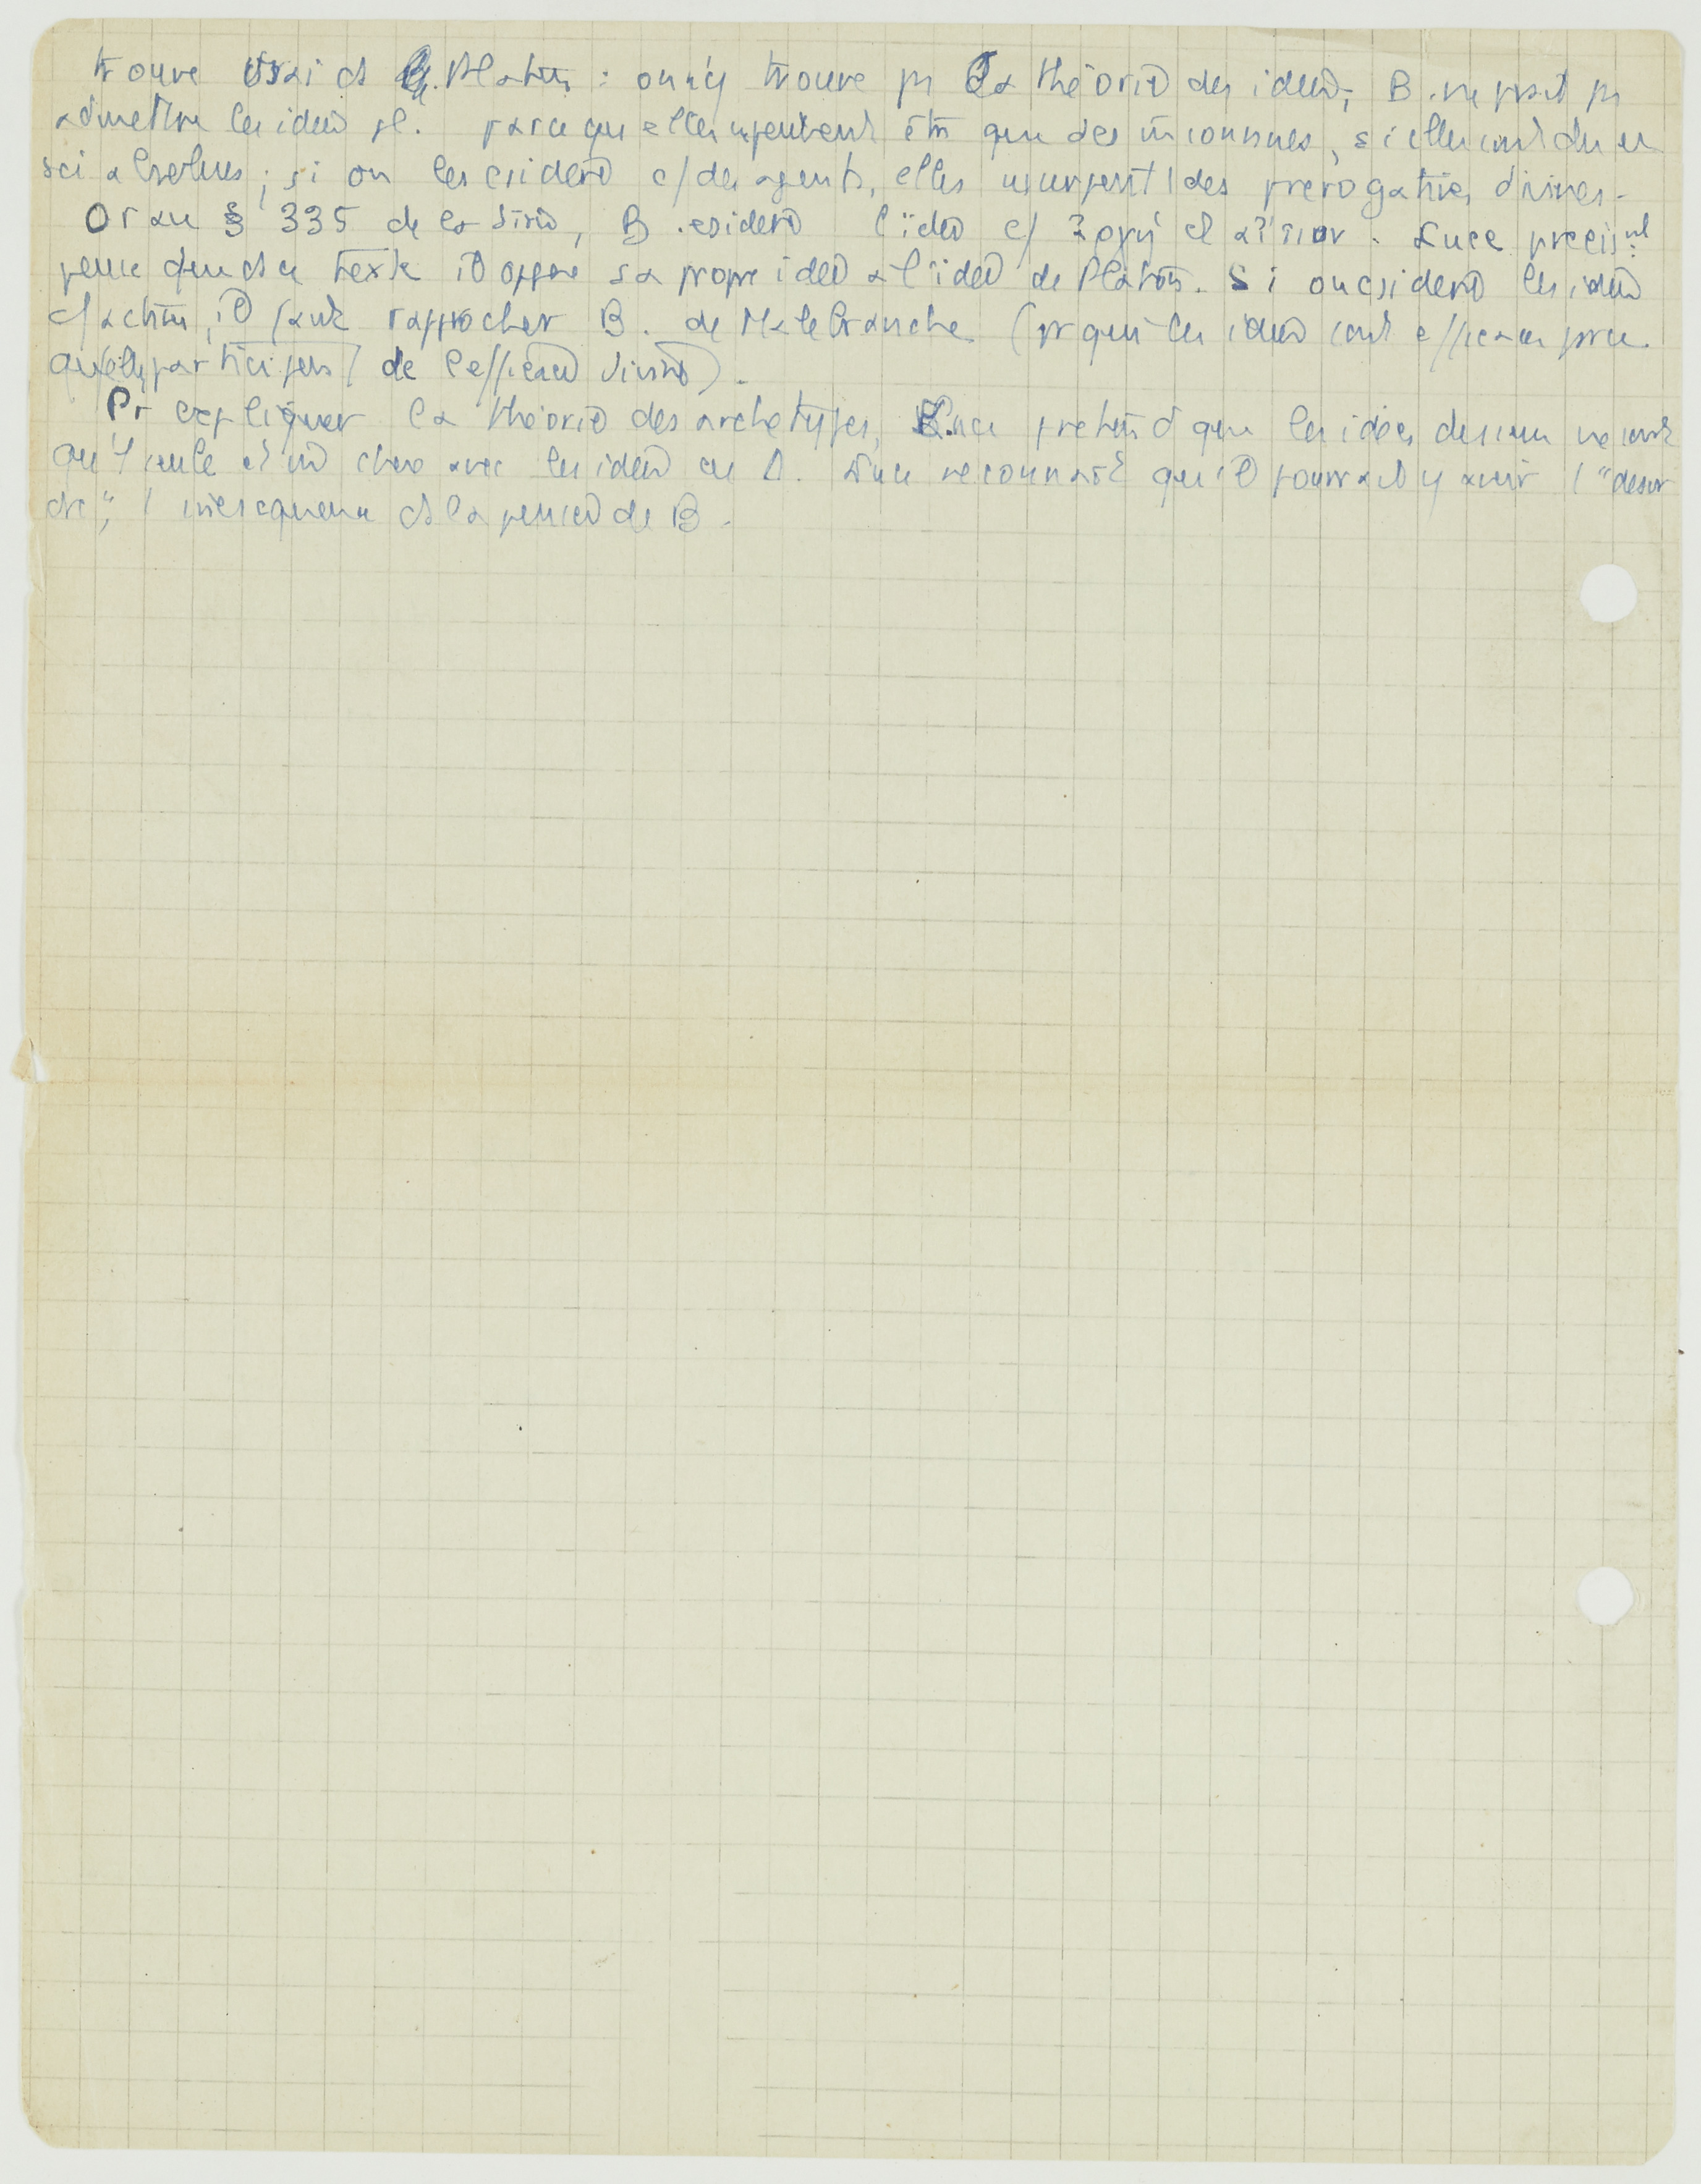 trouve vrai ds Platon : on n'y trouve ps la théorie des idées, B. ne peut ps
admettre les idées pl. parce qu'elles ne peuvent être que des inconnues, si elles sont des en
soi absolues ; si on les csidère c/ des agents, elles usurpent des prérogatives divines.
Or au § 335 de la Siris, B. csidère l'idée c/ ἀρχὴ et αἴτιον. Luce précismt
pense que ds ce texte il oppose sa propre idée à l'idée de Platon. Si on csidère les idées
c/ actives, il faut rapprocher B. de Malebranche (pr qui les idées sont efficaces parce
qu'elles participent de l'efficace divine).
Pr expliquer la théorie des archétypes, Luce prétend que les idées des sens ne sont
qu'1 seule et m̂ chose avec les idées en D. Luce reconnaît qu'il pourrait y avoir 1 "désor
dre", 1 inconséquence ds la pensée de B.